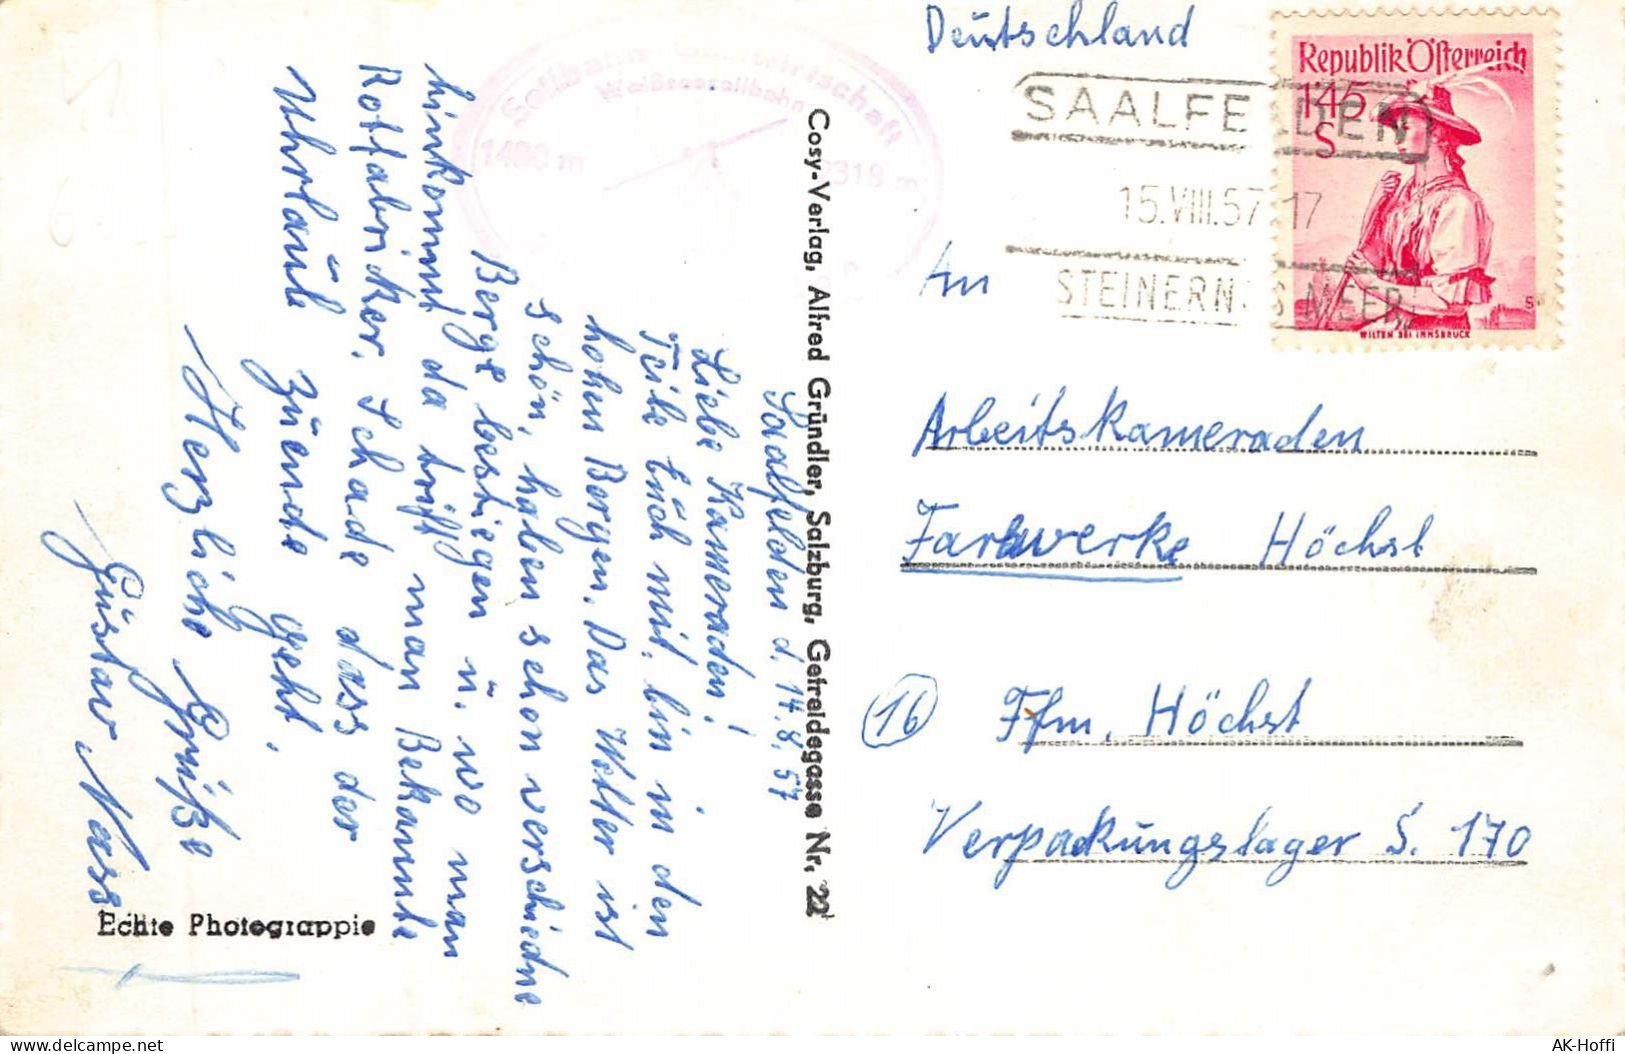 Deutschland
Republik Österreich
1.45
S
SAALFELDEN
15.VIII.57-17
STEINERNES MEER
WILTEN BEI INNSBRUCK
Seilbahn
Weißseeseilbahn
1480 m
2318 m
An
Arbeitskameraden
Farbwerke Höchst
16
Ffm, Höchst
Verpackungslager S. 170
Cosy-Verlag, Alfred Gründler, Salzburg, Getreidegasse Nr. 22
Saalfelden d. 14.8.57
Liebe Kameraden!
Teile Euch mit, bin in den
hohen Bergen. Das Wetter ist
schön, haben schon verschiedne
Berge bestiegen u. wo man
hinkommt da trifft man Bekannte
Rotfabricker. Schade dass der
Uhrlaub zuende geht.
Herzliche Grüße
Gustav Nass
Echte Photographie
AK-Hoffi